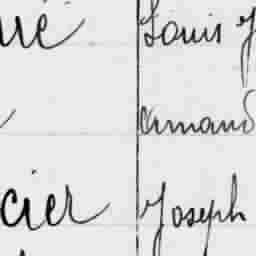 ué Louis J
Armand
cier Joseph